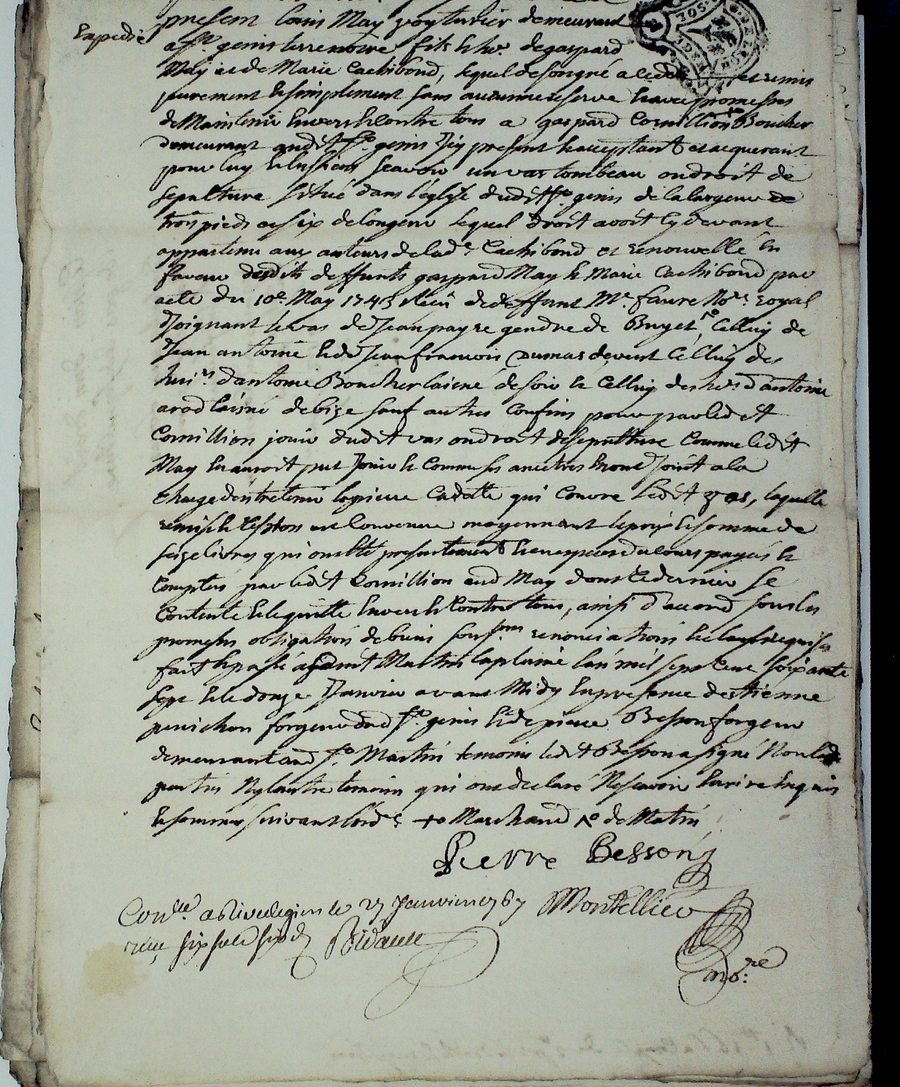 present Louis May voyturier demeurant
Expedié
a St genis terrenoire fils & hr. de gaspard
May et de Marie Cachibond, lequel de son gré a cedé et remis
purement & simplement sans aucune reserve & avec promesses
de Maintenir Envers & Contre tous a gaspard Cornillion +o Boucher
demeurant audit St genis Icy present & acceptant et acquerant
pour luy & les siens scavoir un vas tombeau ou droit de
sepulture situé dans l'église dudit St genis de la largeur de
trois pieds et six de longeur lequel droit avoit cy devant
appartenu aux auteurs de lad.e Cachibond et renouvellé En
faveur desdits deffunts gaspard May & Marie Cachibond par
acte du 10e. May 1743 Reçu de deffunt Me. faure No.re royal
Joignant le vas de Jean payre gendre de Buyet No Celluy de
Jean antoine & de Jean francois Dumas devent Celluy des
hoirs d'antoine Boucher laisné de soir & Celluy des hrs d'antoine
arod laisné de bize sauf autres Confins pour par ledit
Cornillion jouir dudit vas ou droit de sepulture Comme ledit
May En auroit put Jouir & Comme ses ancetres En ont Jouit a la
charge d'entretenir la pierre Cadette qui Couvre ledit vas, laquelle
remise & cession est Convenue moyennant le prix & somme de
seize livres qui ont été presentement & en especes du Cours payés &
Comptés par ledit Cornillion aud May dont Ce dernier se
Contente & le quitte Envers & Contre tous, ainsi d'accord sous les
promesses obligations de biens soumons renonciations & clauses requises
fait & passé audit St Martin la plaine l'an mil sept cent soixante
sept & le douze Janvier avant Midy En presence d'Etienne
perichon forgeur dud St genis & de pierre Besson forgeur
demeurant aud St Martin temoins ledit Besson a signé Non les
parties Ny l'autre temoin qui ont declaré Ne scavoir Ecrire Enquis
& sommés suivant l'ord.e +o Marchand No de Matin
Pierre Besson
Con.lle a Rivedegier le 27 Janvier 1767 Montellier
reçu six sols six d
no.re